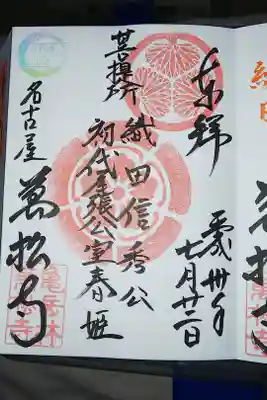 奉拝
平成卅年
七月廿二日
菩提所
織田信秀公
初代尾張公室春姫
名古屋
萬松寺